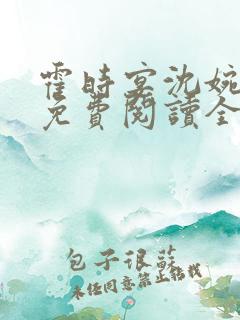 霍時宴沈婉
免費閱讀全
包子很蘇
未經同意禁止轉載